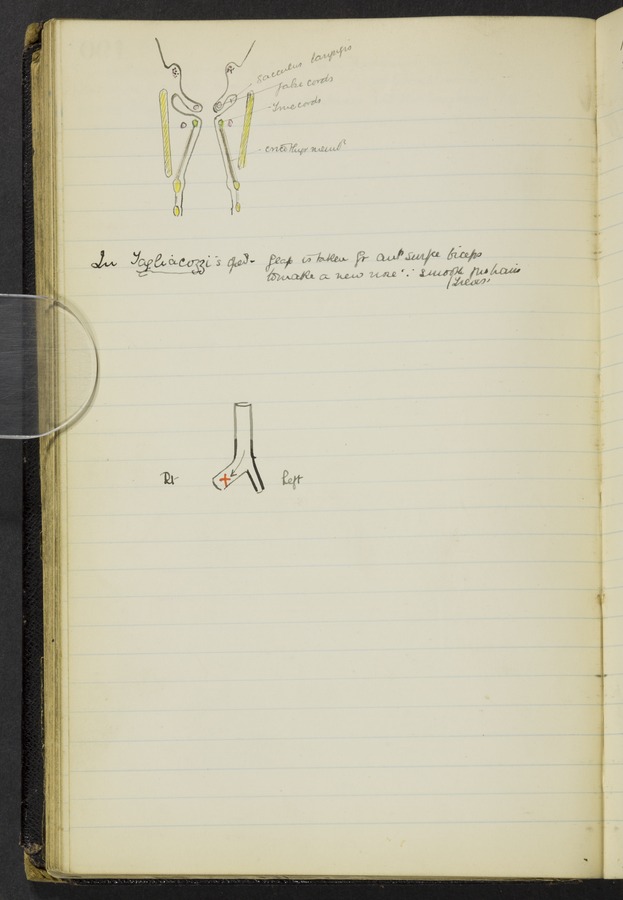 sacculus laryngis
false cords
True cords
crico thyr memb
In Tagliacozzi's opn - flap is taken fr antr surfce biceps
to make a new nose ∵ smooth free hairs
Rt
Left